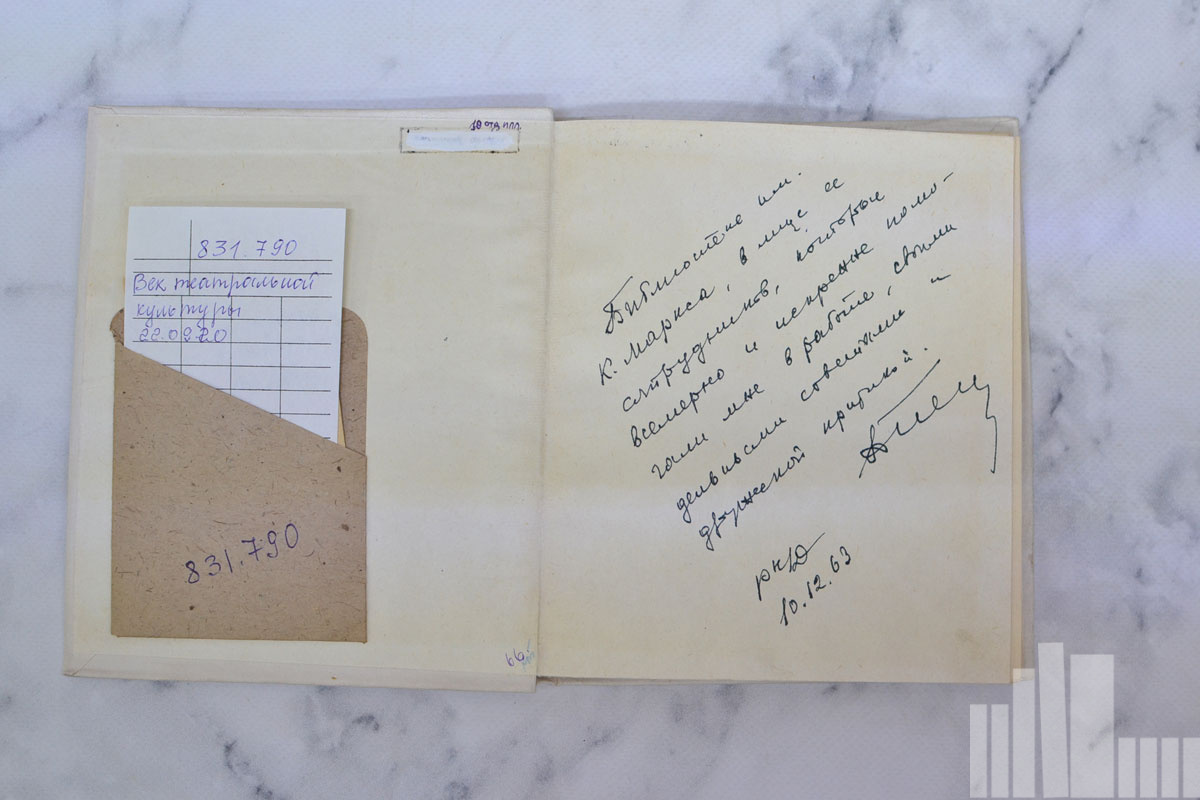 831.790
Век театральной
культуры
22.0920
831.790
Библиотеке им.
К. Маркса, в лице ее
сотрудников, которые
всемерно и искренне помо-
гали мне в работе, своими
дельными советами и
дружеской критикой.
РнД
10.12.63